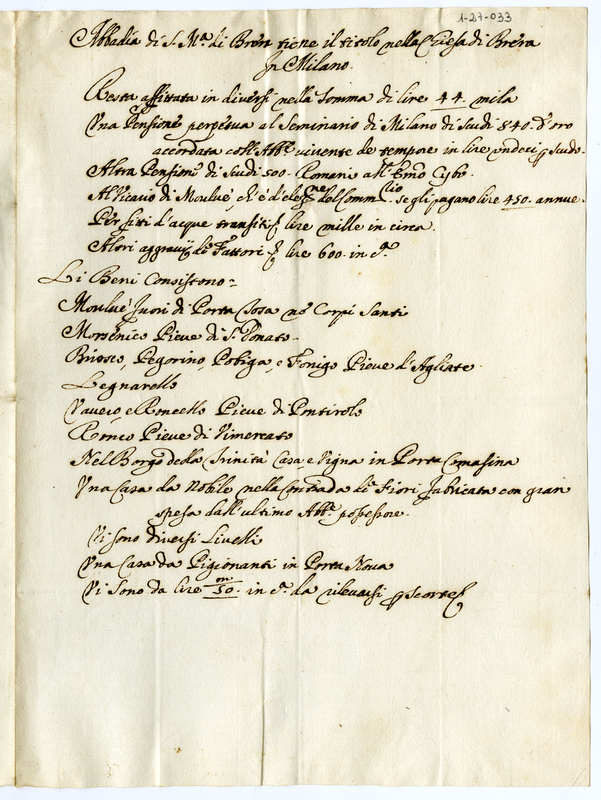 1-27-033
Abbadia di S. Ma. di Brera tiene il titolo nella Chiesa di Brera
in Milano.
Resta affittata in diversi nella somma di lire 44. mila
Una Pensione perpetua al Seminario di Milano di Scudi 840. d'oro
accordata coll'Abbe. vivente de tempore in lire undeci p scudo.
Altra Pensione di Scudi 500. Romani all' Emo Cybo.
Al Vicario di Monluè ch'è d'elezne. del se gli pagano lire 450. annue.
Per fitti d'acque lire mille in circa.
Altri aggravij de Fattori lire 600. in ca.
Li Beni Consistono=
Monluè fuori di Porta Tosa ne Corpi Santi
Morsenico Pieve di S. Donato.
Briosco, Pegorino, Pobiga, e Fonigo Pieve d'Agliate.
Legnarello
Vaverio, e Roncello Pieve di Pontirolo
Ronco Pieve di Vimercato
Nel Borgo della Trinità Casa, e Vigna in Porta Comasina
Una Casa da Nobile nella Contrada de Fiori fabricata con gran
spesa dall'ultimo Abbe. possessore.
Vi sono diversi Livelli
Una Casa da Pigionanti in Porta Nova
Vi sono da lire 50.m in ca. da rilevarsi p scorte